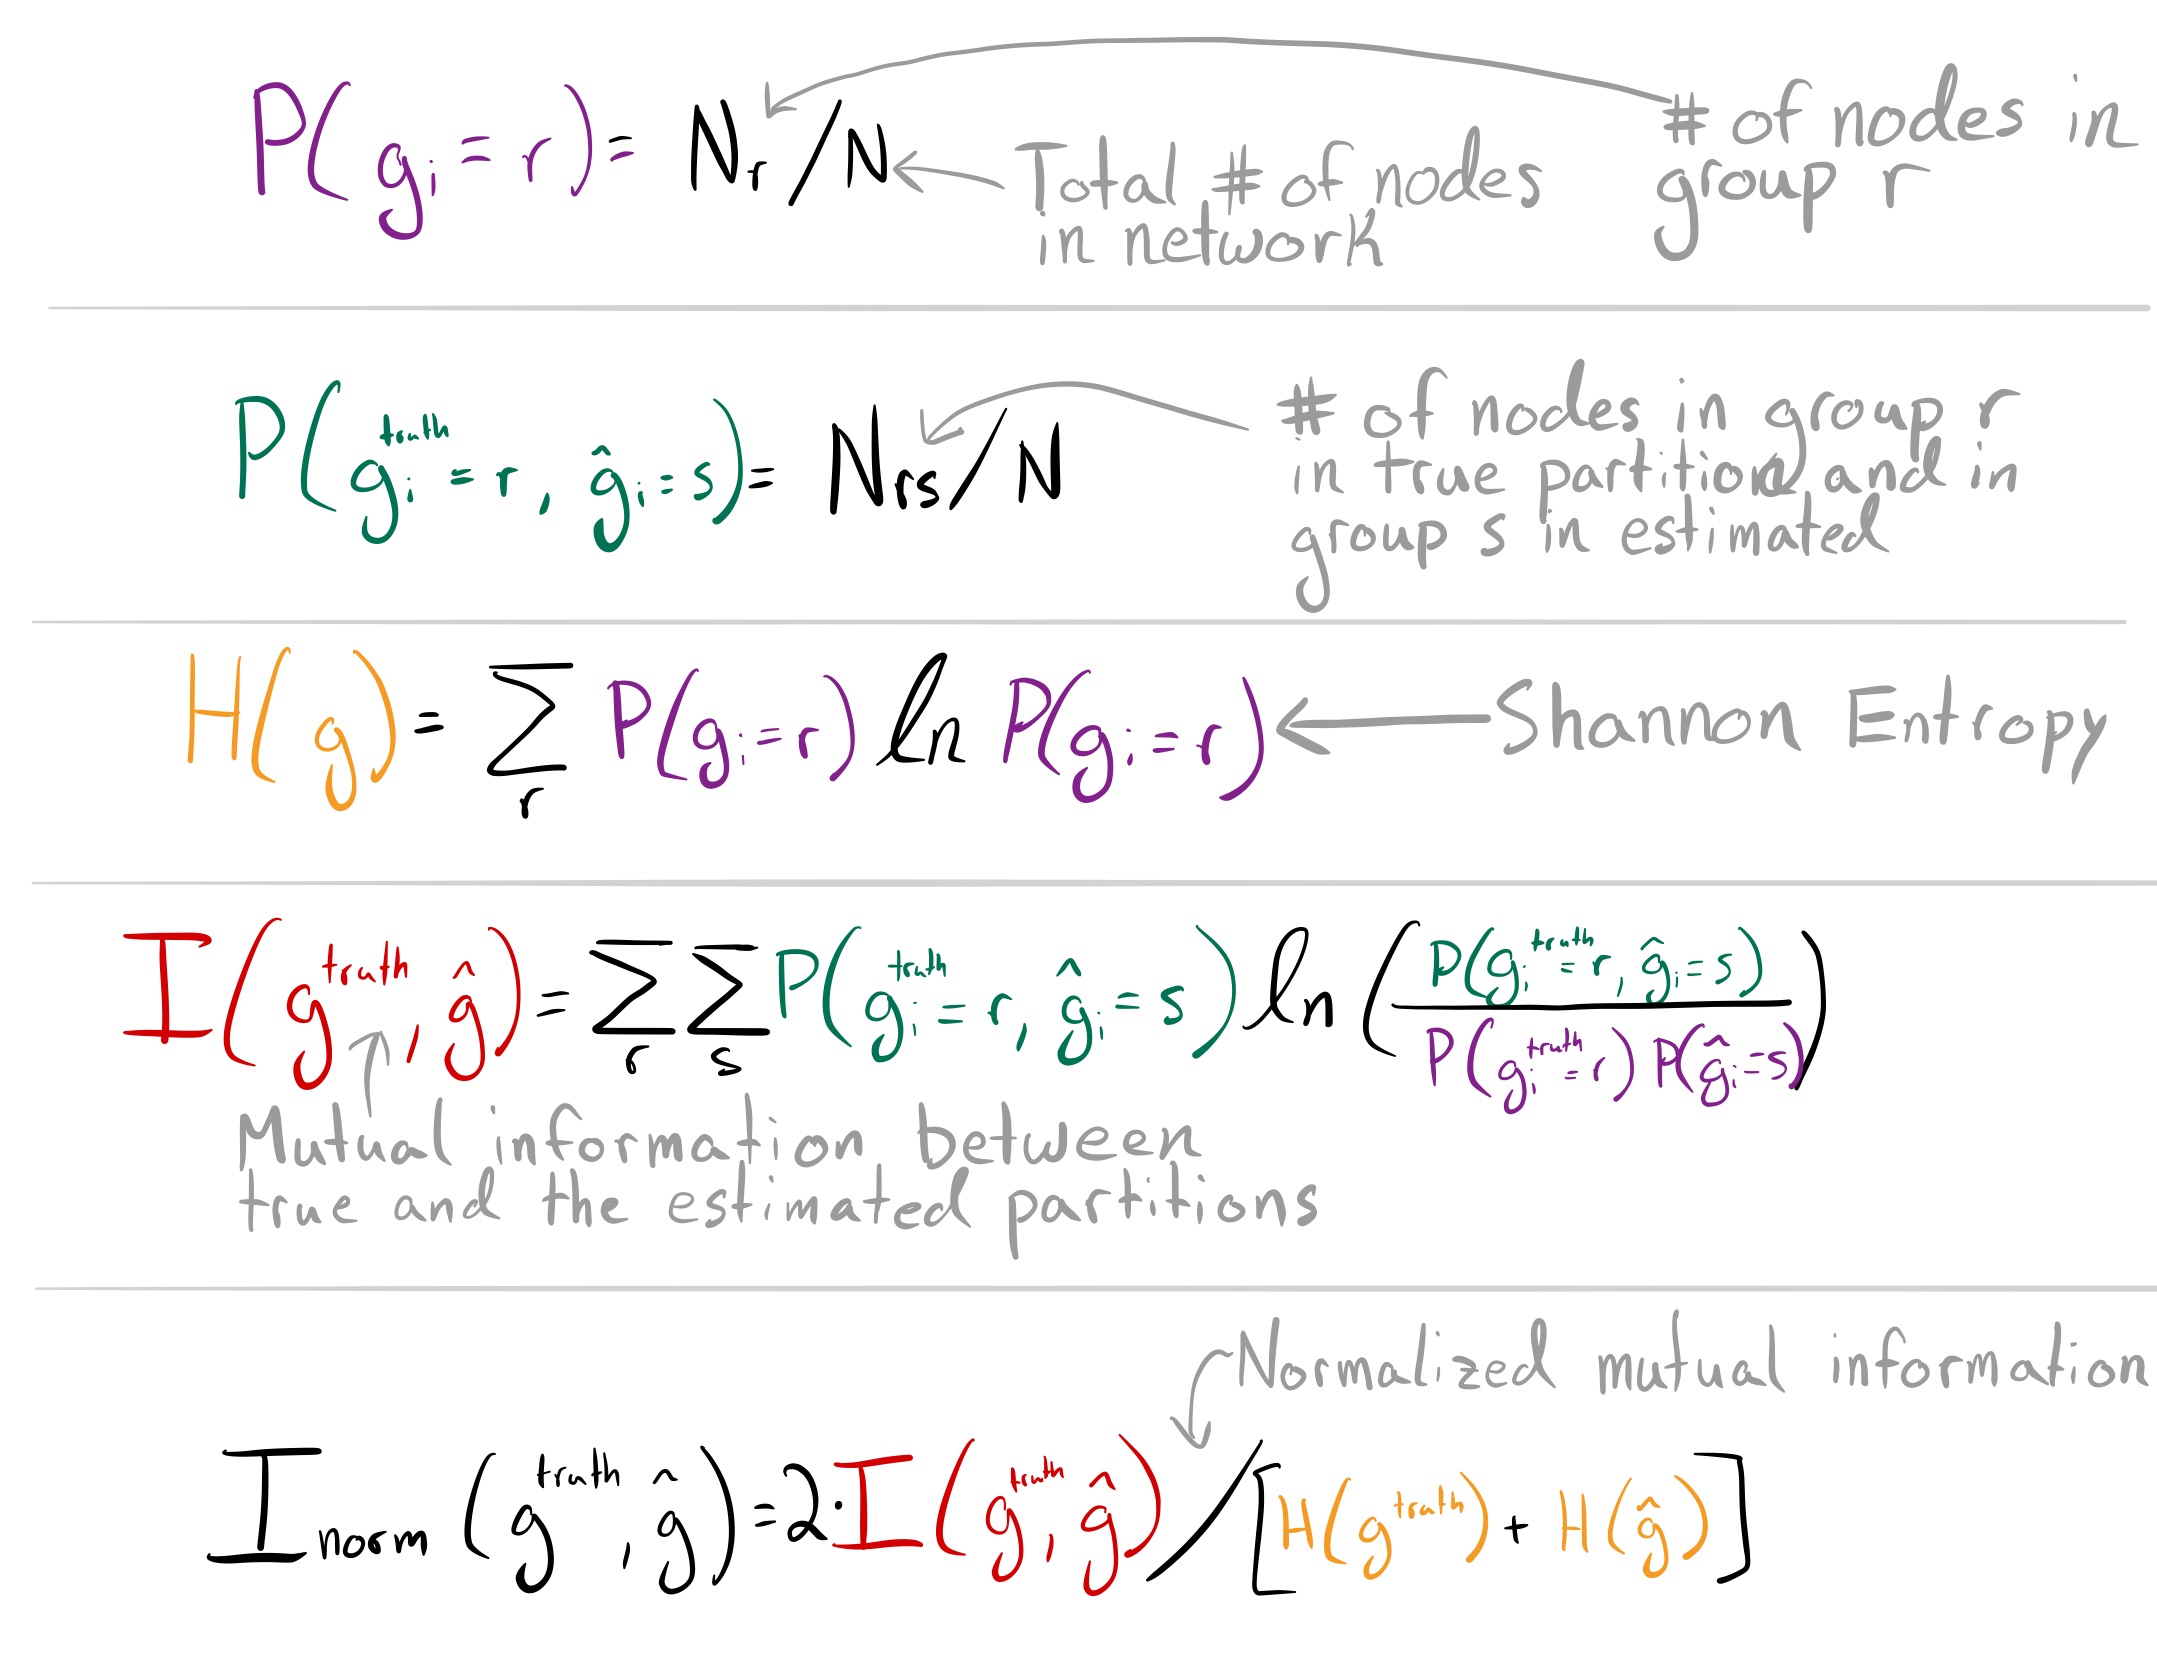 P(gᵢ = r) = Nᵣ/N
# of nodes in
group r
Total # of nodes
in network
P(gᵢ^truth = r, ĝᵢ = s) = Nᵣₛ/N
# of nodes in group r
in true partition and in
group s in estimated
H(g) = ∑ᵣ P(gᵢ = r) ln P(gᵢ = r)
Shannon Entropy
I(g^truth, ĝ) = ∑ᵣ ∑ₛ P(gᵢ^truth = r, ĝᵢ = s) ln(P(gᵢ^truth = r, ĝᵢ = s) / P(gᵢ^truth = r) P(ĝᵢ = s))
Mutual information between
true and the estimated partitions
Normalized mutual information
I_norm (g^truth, ĝ) = 2·I(g^truth, ĝ)/[H(g^truth) + H(ĝ)]